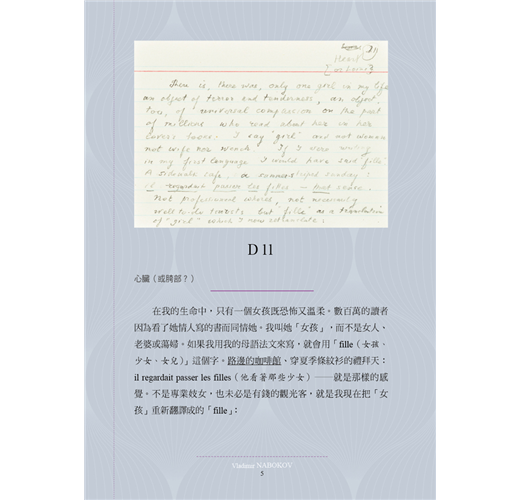 Heart
There is, there was, only one girl in my life,
an object of terror and tenderness, an object
too, of universal compassion on the part
of millions who read about her in her
lover's books. I say "girl" and not woman
not wife nor wench. If I were writing
in my first language I would have said fille
A sidewalk cafe, a summer-striped sunday:
il regardait passer les filles — that sense.
Not professional whores, not necessarily
well-to-do tourists but "fille" as a translation
of "girl" which I now retranslate:
D 11
心臟（或胯部？）
在我的生命中，只有一個女孩既恐怖又溫柔。數百萬的讀者
因為看了她情人寫的書而同情她。我叫她「女孩」，而不是女人、
老婆或蕩婦。如果我用我的母語法文來寫，就會用「fille（女孩、
少女、女兒）」這個字。路邊的咖啡館、穿夏季條紋衫的禮拜天；
il regardait passer les filles（他看著那些少女）——就是那樣的感
覺。不是專業妓女，也未必是有錢的觀光客，就是我現在把「女
孩」重新翻譯成的「fille」；
Vladimir NABOKOV
5